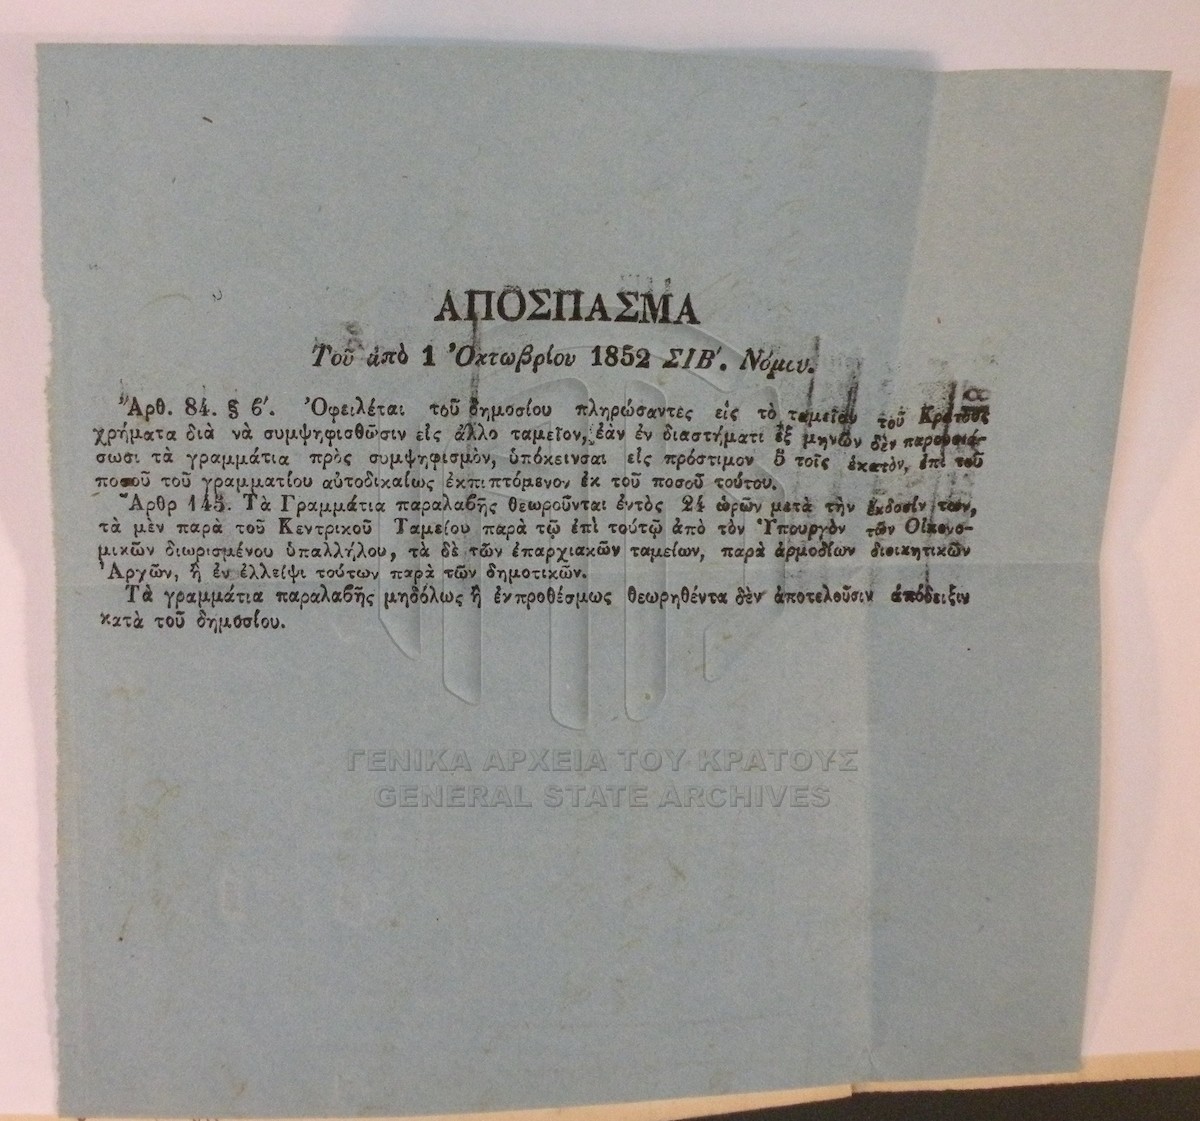 ΑΠΟΣΠΑΣΜΑ
Τοῦ ἀπὸ 1 Ὀκτωβρίου 1852 ΣΙΒ΄. Νόμου.
Ἄρθ. 84. § 6΄. Ὀφειλέται τοῦ δημοσίου πληρώσαντες εἰς τὸ ταμεῖον τοῦ Κράτους
χρήματα διὰ νὰ συμψηφισθῶσιν εἰς ἄλλο ταμεῖον, ἐὰν ἐν διαστήματι ἓξ μηνῶν δὲν παρουσιά-
σωσι τὰ γραμμάτια πρὸς συμψηφισμὸν, ὑπόκεινται εἰς πρόστιμον 5 τοῖς ἑκατὸν, ἐπὶ τοῦ
ποσοῦ τοῦ γραμματίου αὐτοδικαίως ἐκπιπτόμενον ἐκ τοῦ ποσοῦ τούτου.
Ἄρθρ 145. Τὰ Γραμμάτια παραλαβῆς θεωροῦνται ἐντὸς 24 ὡρῶν μετὰ τὴν ἔκδοσίν των,
τὰ μὲν παρὰ τοῦ Κεντρικοῦ Ταμείου παρὰ τῷ ἐπὶ τούτῳ ἀπὸ τὸν Ὑπουργὸν τῶν Οἰκονο-
μικῶν διωρισμένου ὑπαλλήλου, τὰ δὲ τῶν ἐπαρχιακῶν ταμείων, παρὰ ἁρμοδίων διοικητικῶν
Ἀρχῶν, ἢ ἐν ἐλλείψι τούτων παρὰ τῶν δημοτικῶν.
Τὰ γραμμάτια παραλαβῆς μηδόλως ἢ ἐκπροθέσμως θεωρηθέντα δὲν ἀποτελοῦσιν ἀπόδειξιν
κατὰ τοῦ δημοσίου.
ΓΕΝΙΚΑ ΑΡΧΕΙΑ ΤΟΥ ΚΡΑΤΟΥΣ
GENERAL STATE ARCHIVES